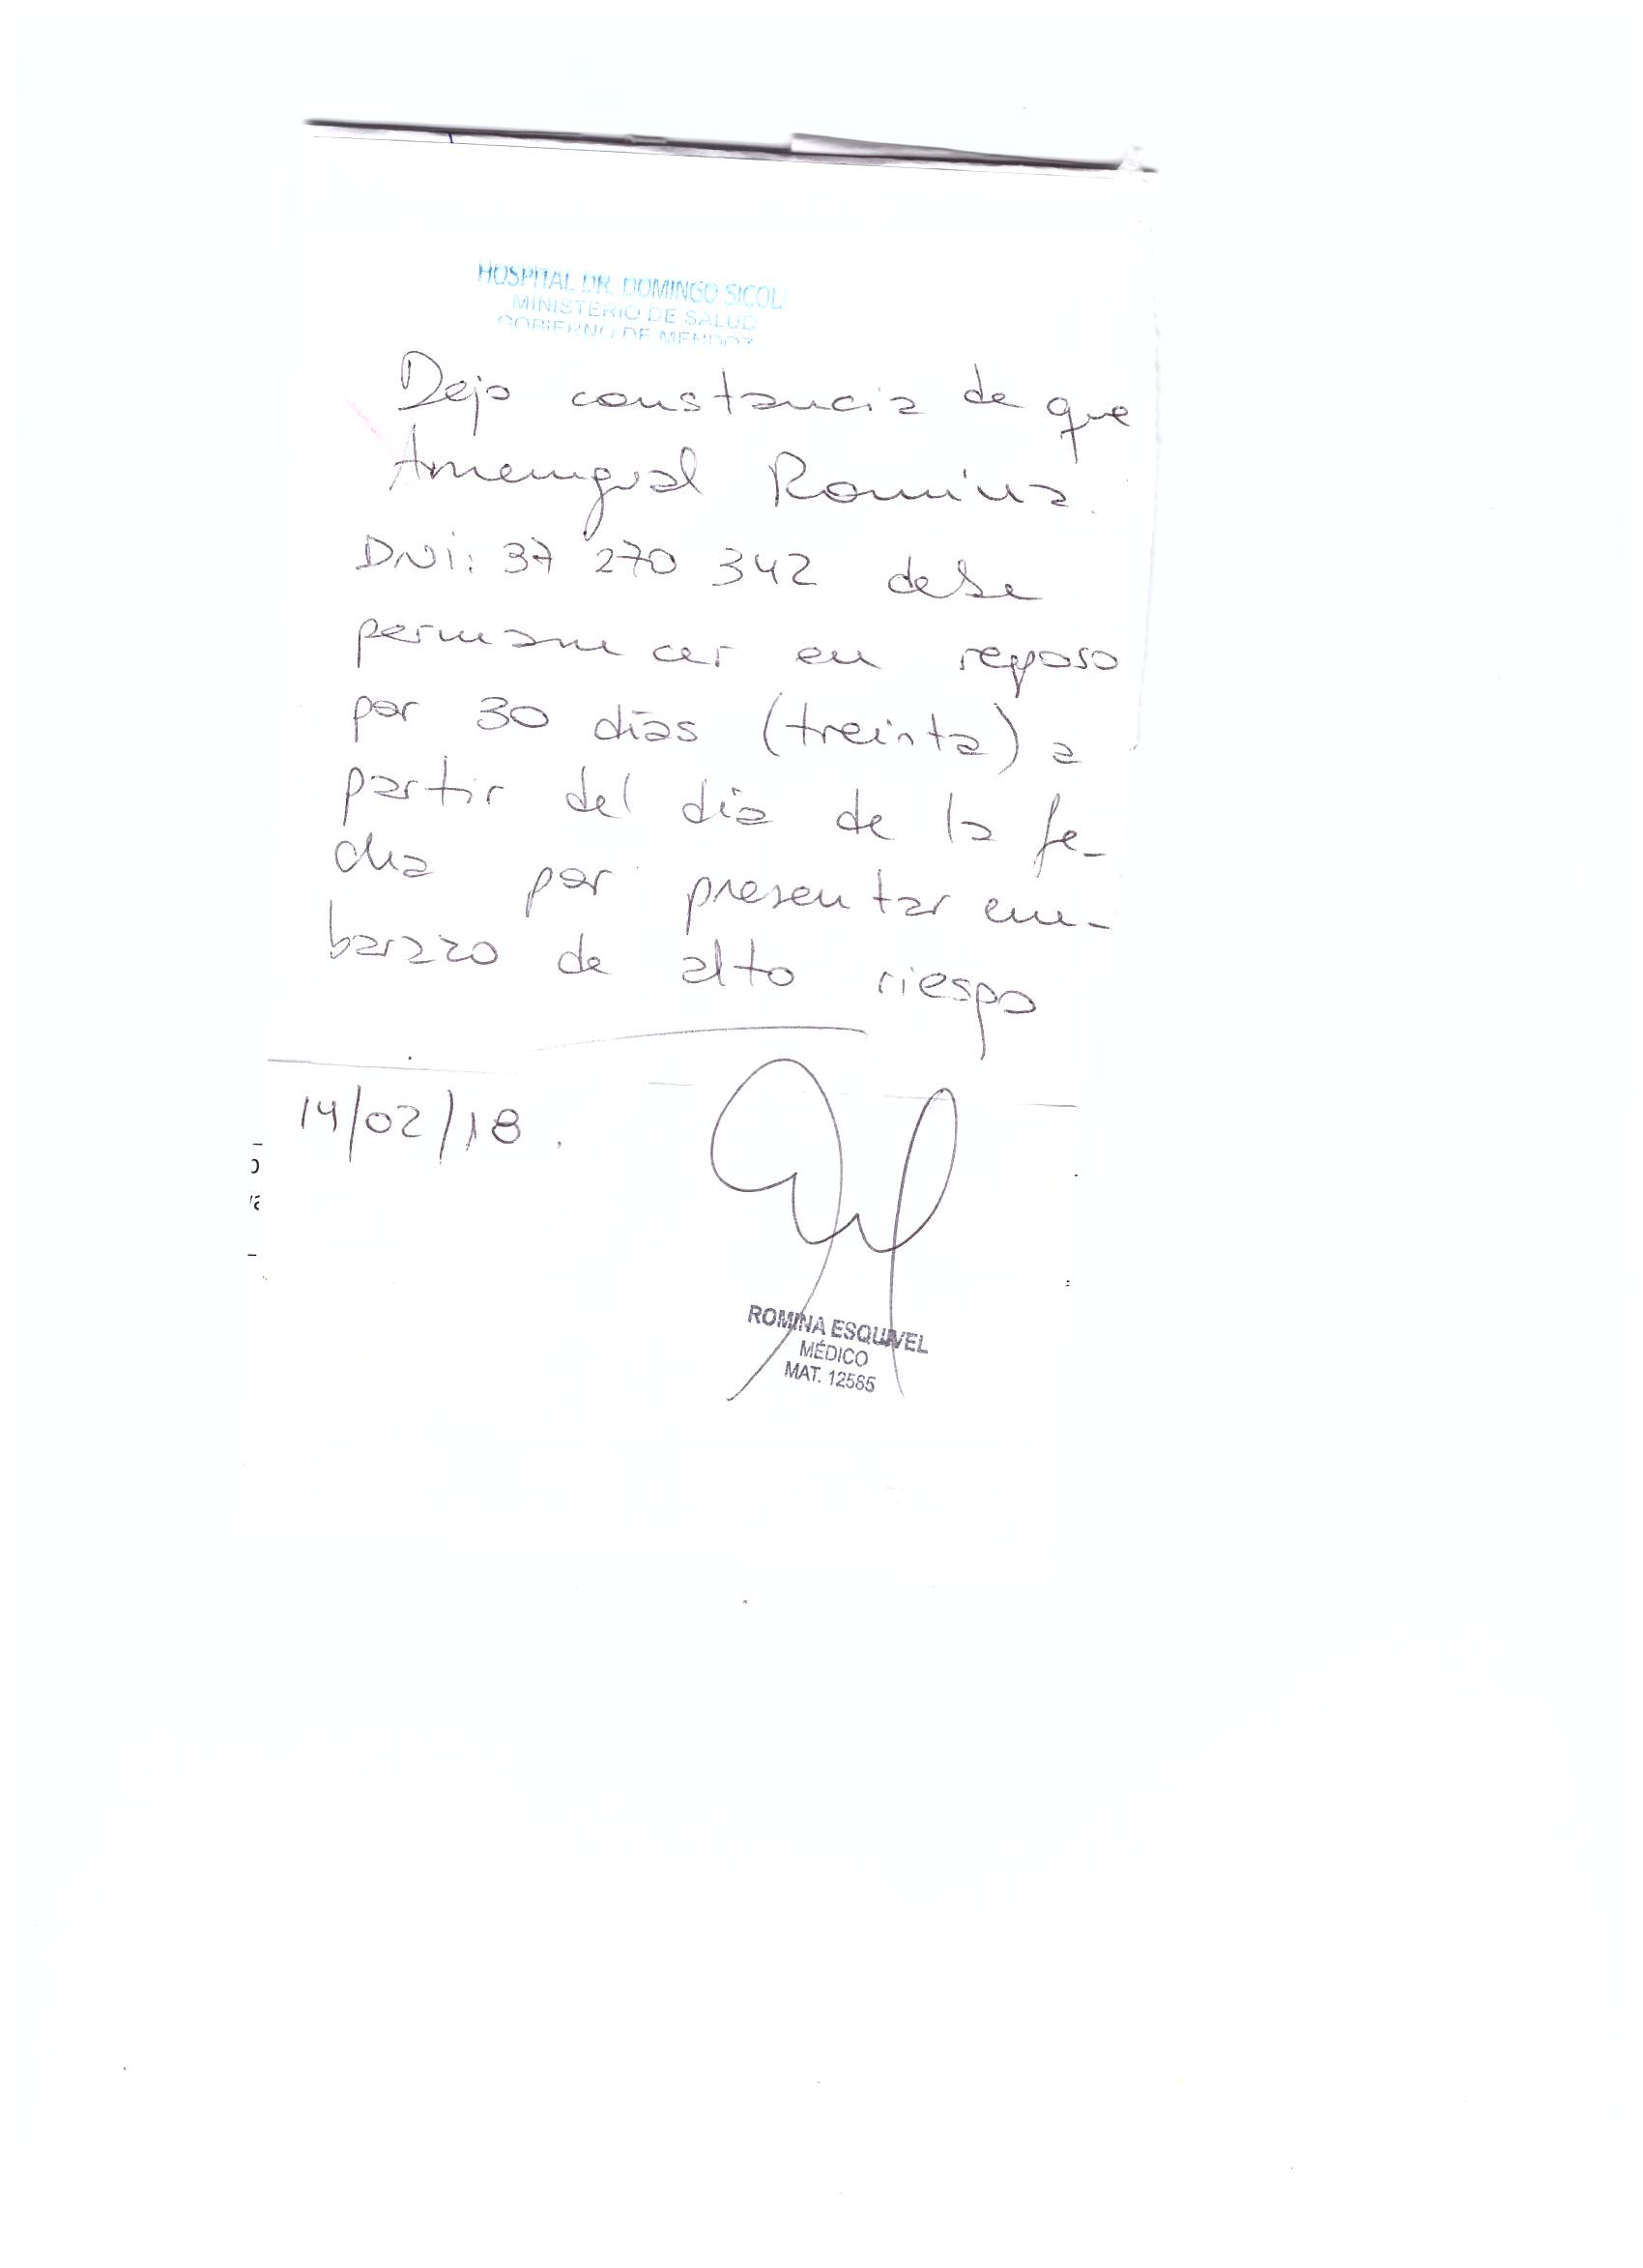 HOSPITAL DR. DOMINGO SICOLI
MINISTERIO DE SALUD
GOBIERNO DE MENDOZ
Dejo constancia de que
Amengual Romina.
DNI: 37 270 342 debe
permanecer en reposo
por 30 días (treinta) a
partir del día de la fe-
cha por presentar em-
barazo de alto riesgo
14/02/18.
ROMINA ESQUIVEL
MÉDICO
MAT. 12585